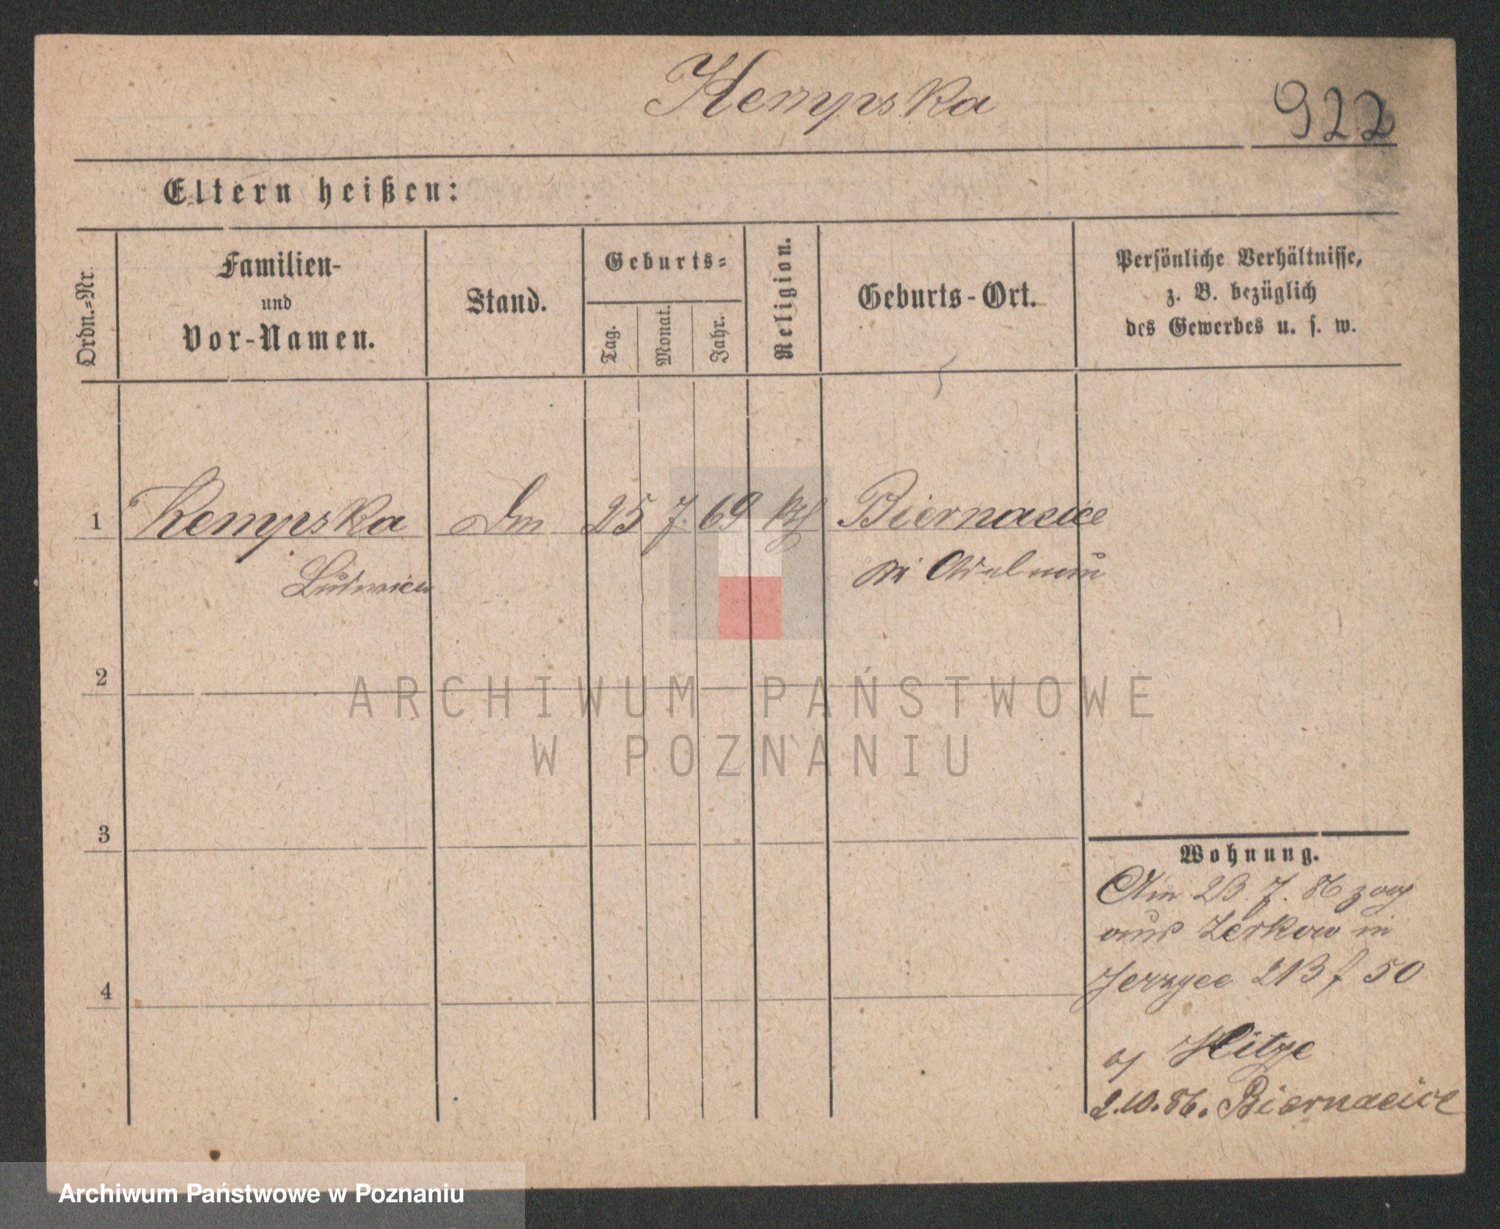 Kempska
922
Eltern heißen:
Ordn.=Nr.
Familien-
und
Vor-Namen.
Stand.
Geburts=
Tag.
Monat.
Jahr.
Religion.
Geburts-Ort.
Persönliche Verhältnisse,
z. B. bezüglich
des Gewerbes u. s. w.
1
Kempska
25
7.
69
Biernacice
Ludwica
bei Adelnau
2
ARCHIWUM PAŃSTWOWE
W POZNANIU
3
Wohnung.
Am 23.7.86 zog
aus Zerkow in
Jerzyce 213 f 50
Hitze
2.10.86. Biernacice
4
Archiwum Państwowe w Poznaniu